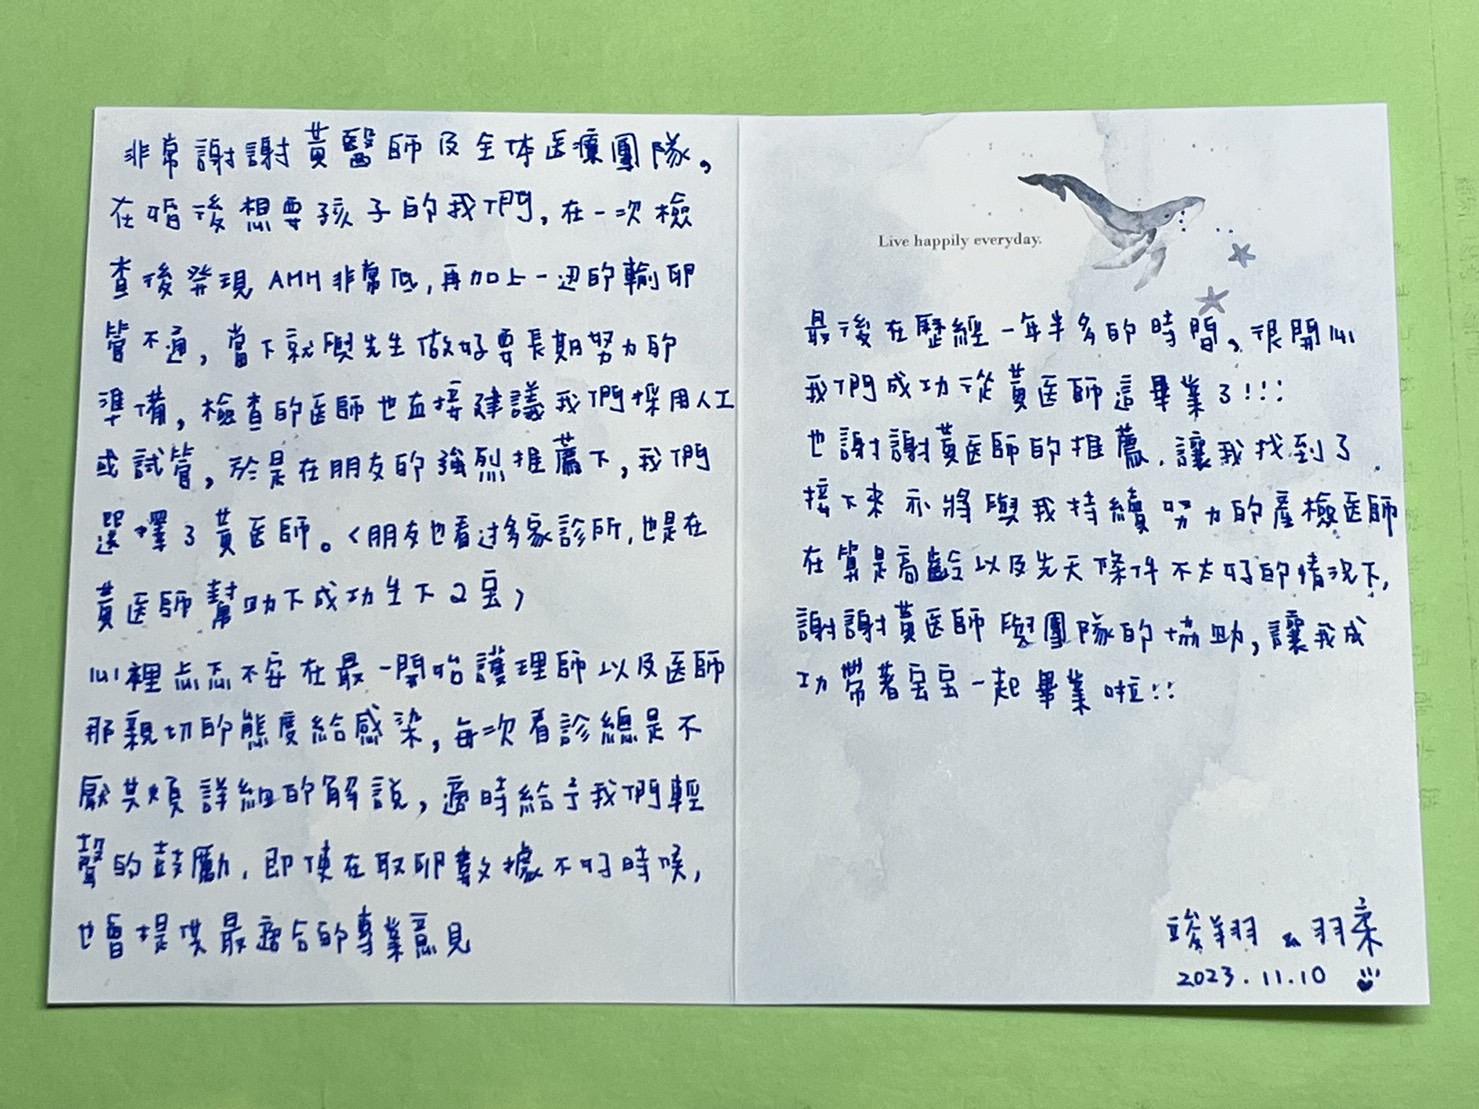 非常謝謝黃醫師及全体医療團隊,
在婚後想要孩子的我們,在一次檢
查後發現AMH非常低,再加上一边的輸卵
管不通,當下就與先生做好要長期努力的
準備,檢查的医師也直接建議我們採用人工
或試管,於是在朋友的強烈推薦下,我們
選擇了黃医師。<朋友也看过多家診所,也是在
黃医師幫助下成功生下2宝>
心裡忐忑不安在最一開始護理師以及医師
那親切的態度給感染,每次看診總是不
厭其煩詳細的解說,適時給予我們輕
聲的鼓勵,即使在取卵數據不好時候,
也會提供最適合的專業意見
Live happily everyday.
最後在歷經一年半多的時間,很開心
我們成功從黃医師這畢業了!!!
也謝謝黃医師的推薦,讓我找到了
接下來亦將與我持續努力的產檢医師
在算是高齡以及先天條件不太好的情況下,
謝謝黃医師與團隊的協助,讓我成
功帶著宝宝一起畢業啦!!
竣翔 & 羽柔
2023.11.10